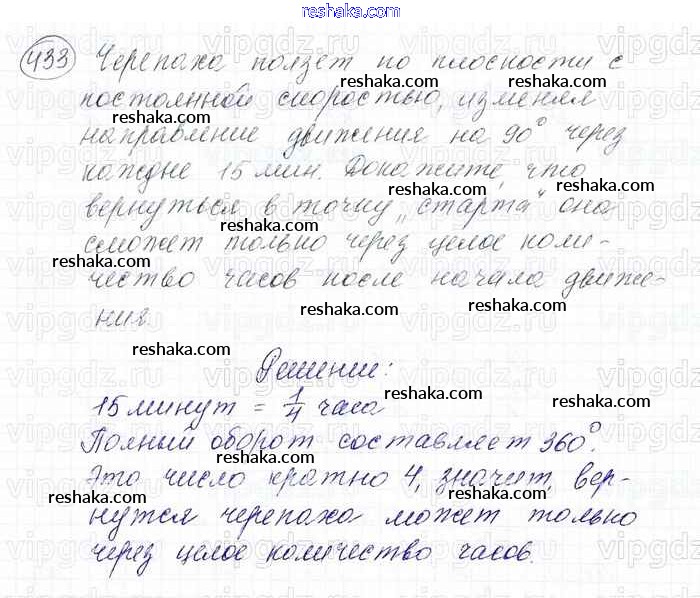 reshaka.com
433 Черепаха ползёт по плоскости с
reshaka.com reshaka.com
постоянной скоростью, изменяя
reshaka.com
направление движения на 90° через
каждые 15 мин. Докажите, что
reshaka.com reshaka.com
вернуться в точку „старта“ она
сможет только через целое коли-
reshaka.com reshaka.com
чество часов после начала движе-
reshaka.com
ния.
reshaka.com
Решение:
15 минут = 1/4 часа
reshaka.com
Полный оборот составляет 360°.
reshaka.com
Это число кратно 4, значит, вер-
reshaka.com reshaka.com
нутся черепаха может только
reshaka.com
через целое количество часов.